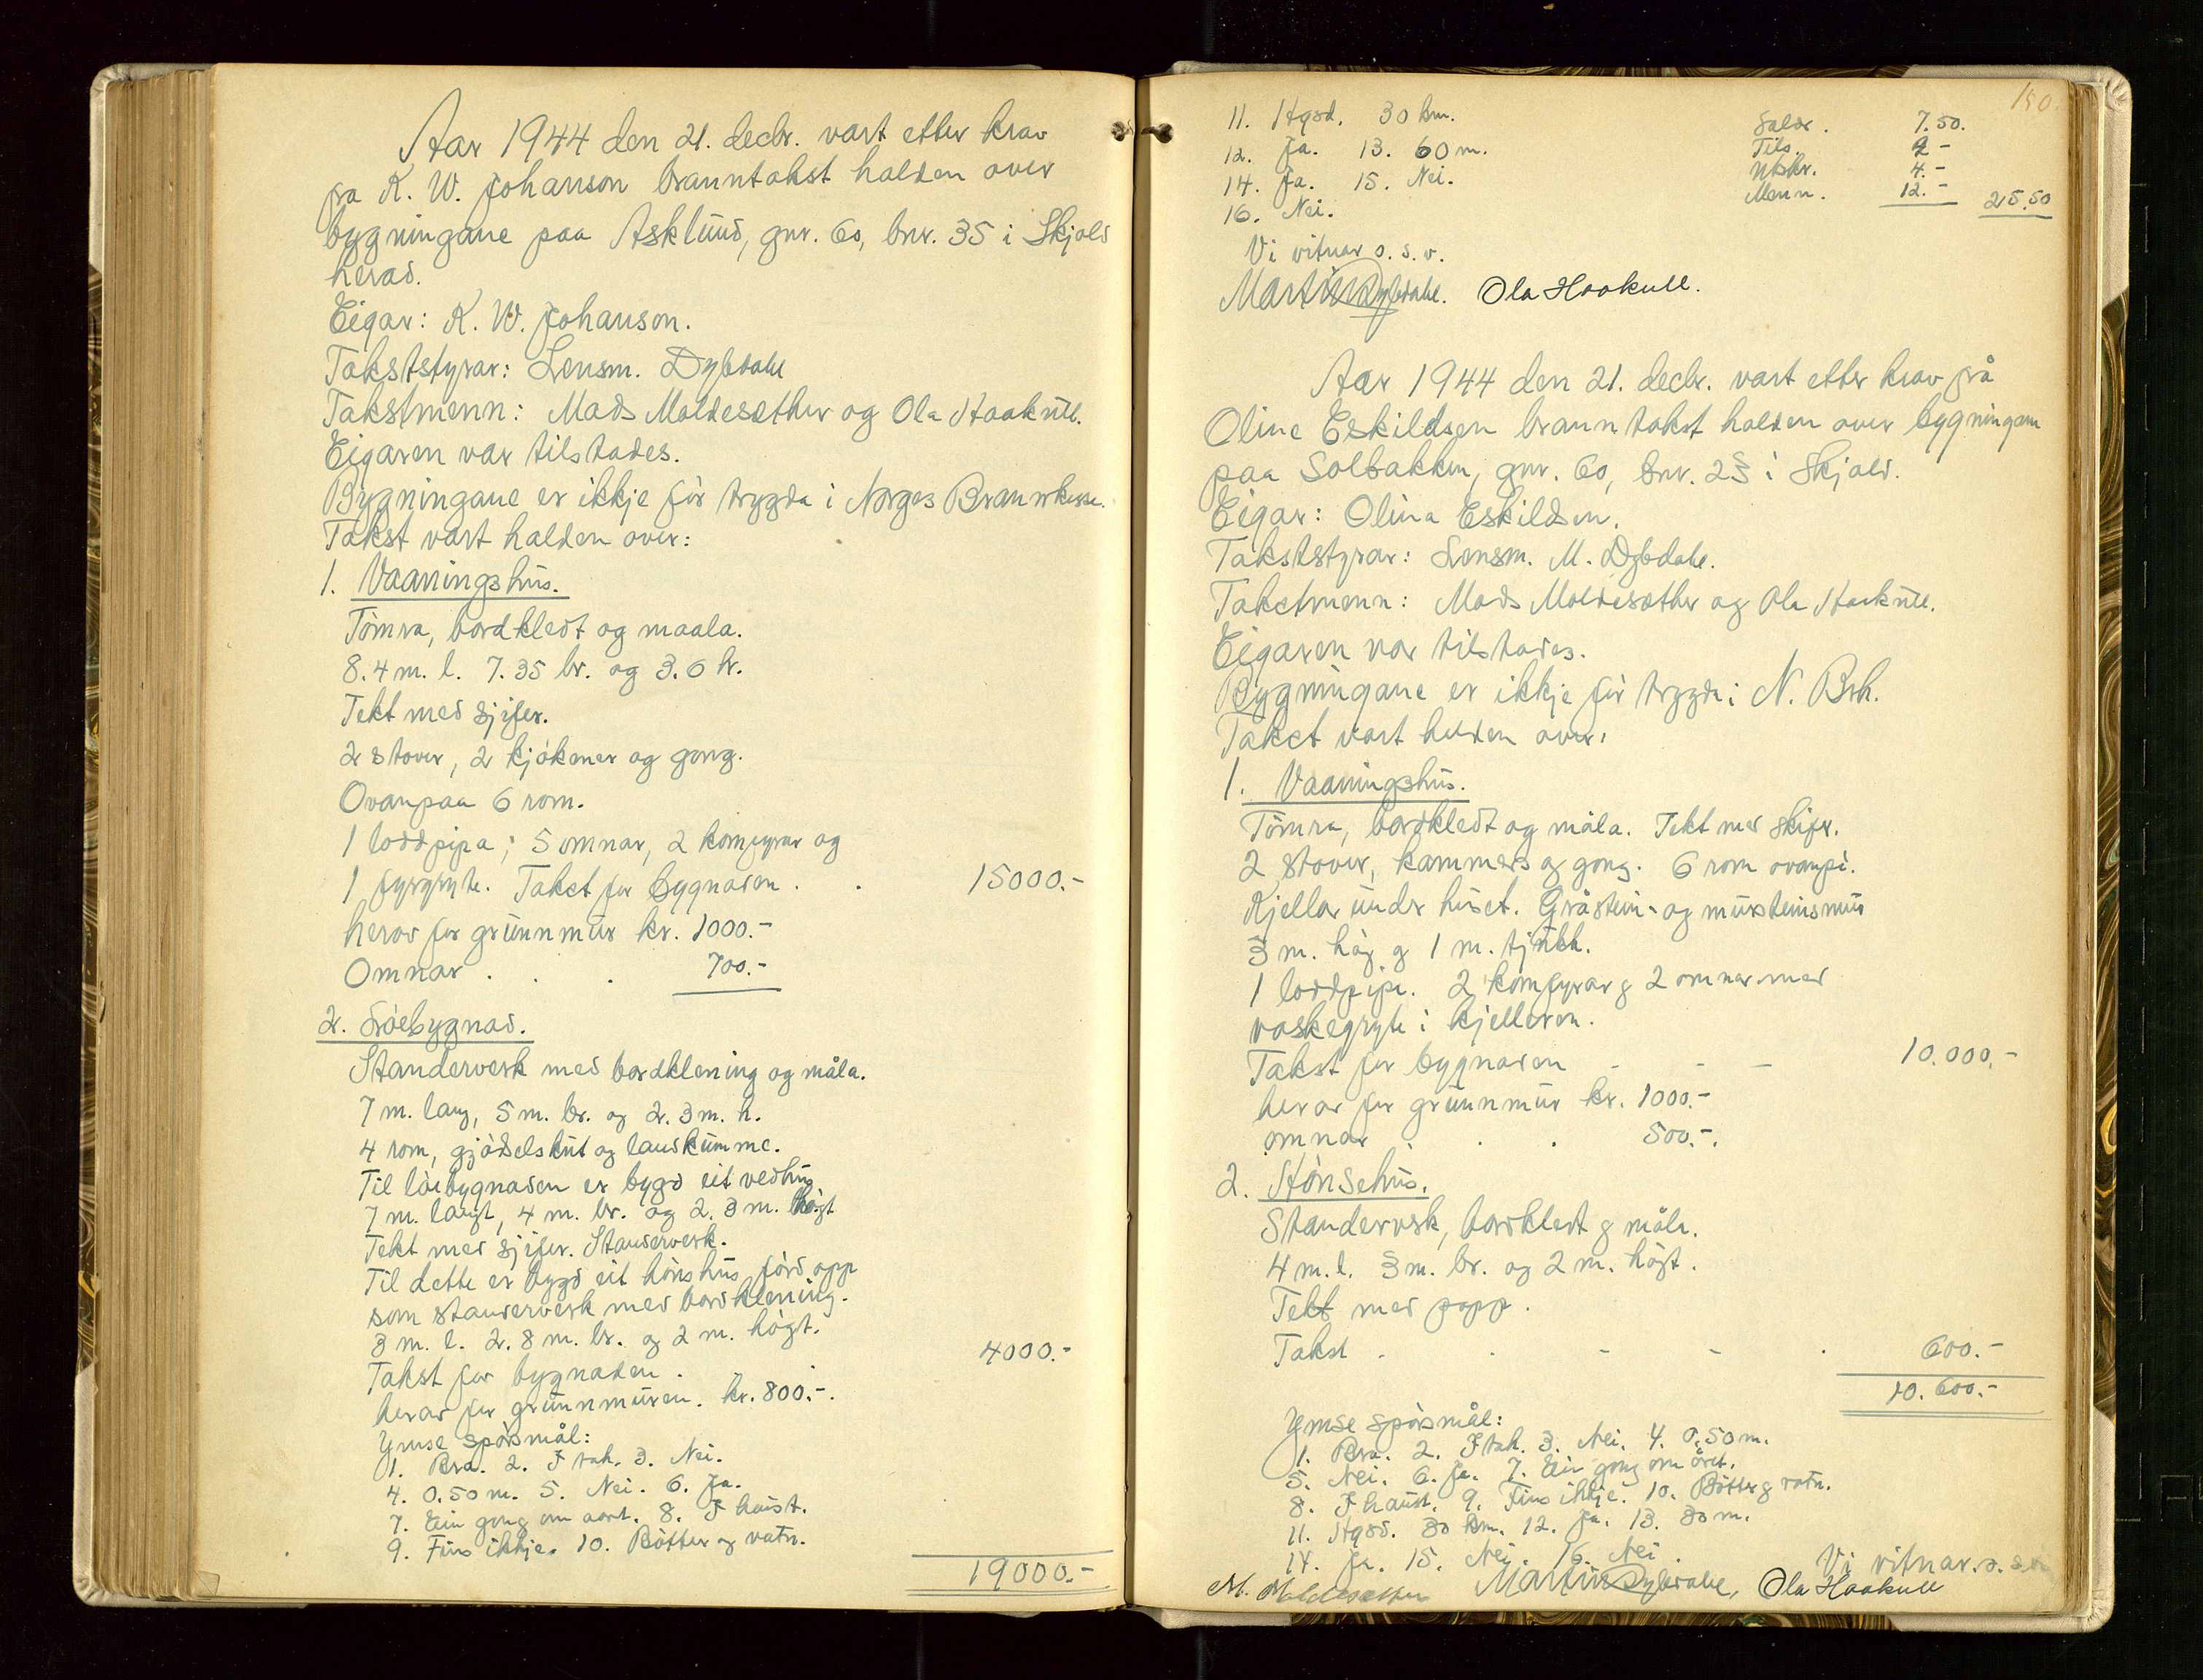 Aar 1944 den 21. decbr. vart etter krav
fra K. W. Johanson branntakst halden over
bygningane paa Asklund, gnr. 60, bnr. 35 i Skjold
herad.
Eigar: K. W. Johanson.
Takststyrar: Lensm. Dybdahl
Takstmenn: Mads Moldesæther og Ola Haakull.
Eigaren var tilstades.
Bygningane er ikkje för trygda i Norges Brannkasse.
Takst vart halden over:
1. Vaaningshus.
Tömra, bordkledt og maala.
8.4 m. l. 7.35 br. og 3.6 h.
Tekt med sjifer.
2 stover, 2 kjökener og gong.
Ovanpaa 6 rom.
1 loddpipa; 5 omnar, 2 komfyrar og
1 fyrgryte. Takst for bygnaden . . 15000.-
herav for grunnmur kr. 1000.-
Omnar . . . 700.-
2. Löebygnad.
Standerverk med bordklening og måla.
7 m. lang, 5 m. br. og 2.3 m. h.
4 rom, gjödselskut og landkumme.
Til löebygnaden er bygd eit vedhus
7 m. langt, 4 m. br. og 2.3 m. högt
Tekt med sjifer. Standerverk.
Til dette er bygd eit hönshus förd opp
som standerverk med bordklening.
3 m. l. 2.8 m. br. og 2 m. högt.
Takst for bygnaden . . 4000.-
herav for grunnmuren. kr. 800.-.
Ymse spörsmål:
1. Bra. 2. I tak. 3. Nei.
4. 0.50 m. 5. Nei. 6. Ja.
7. Ein gong om aaret. 8. I haust.
9. Fins ikkje. 10. Bötter og vatn.
19000.-
150.
11. Hgsd. 30 km.
12. Ja. 13. 60 m.
14. Ja. 15. Nei.
16. Nei.
7.50.
Tils. 2-
Utskr. 4.-
Menn. 12.- 25.50
Vi vitnar o. s. v.
Martin Dybdahl. Ola Haakull.
Aar 1944 den 21. decbr. vart etter krav frå
Oline Eskildsen branntakst halden over bygningane
paa Solbakken, gnr. 60, bnr. 23 i Skjold.
Eigar: Olina Eskildsen.
Takststyrar: Lensm. M. Dybdahl.
Takstmenn: Mads Moldesæther og Ola Haakull.
Eigaren var tilstades.
Bygningane er ikkje för trygda i N. Brk.
Takst vart halden over:
1. Vaaningshus.
Tömra, bordkledt og måla. Tekt med skifer.
2 stover, kammers og gong. 6 rom ovanpå.
Kjellar under huset. Gråstein- og mursteinsmur
3 m. hög og 1 m. tjukk.
1 loddpipe. 2 komfyrar og 2 omnar med
vaskegryte i kjelleren.
Takst for bygnaden - - - 10.000.-
herav for grunnmur kr. 1000.-
omnar . . . 500.-.
2. Hönsehus.
Standerverk, bordkledt og måla.
4 m. l. 3 m. br. og 2 m. högt.
Tekt med papp.
Takst - . - - . 600.-
10.600.-
Ymse spörsmål:
1. Bra. 2. I tak. 3. Nei. 4. 0.50 m.
5. Nei. 6. Ja. 7. Ein gong om året.
8. I haust. 9. Fins ikkje. 10. Bötter og vatn.
11. Hgsd. 30 km. 12. Ja. 13. 30 m.
14. Ja. 15. Nei. 16. Nei.
Vi vitnar o. s. v.
M. Moldesæther Martin Dybdahl, Ola Haakull